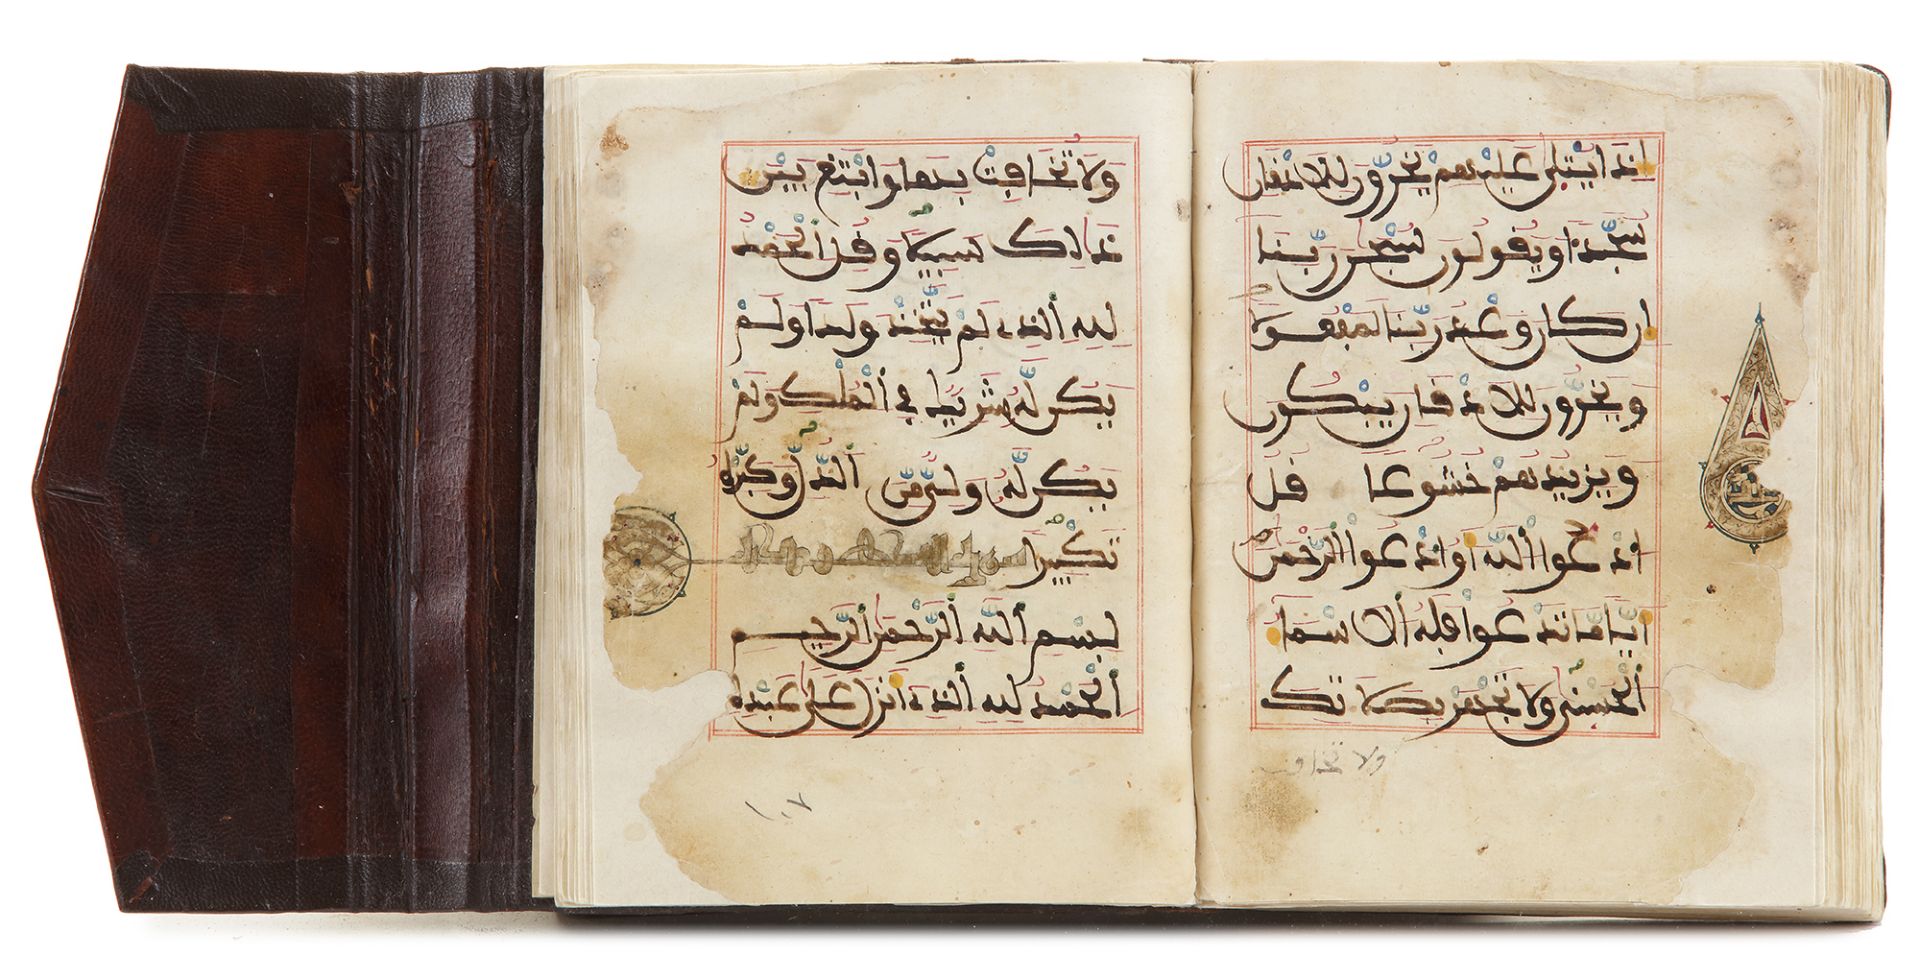 إذا يتلى عليهم يخرون للاذقان
سجدا ويقولون سبحن ربنا
ان كان وعد ربنا لمفعولا
ويخرون للاذقان يبكون
ويزيدهم خشوعا قل
ادعوا الله أو ادعوا الرحمن
أيا ما تدعوا فله الاسما
الحسنى ولا تجهر بصلاتك
ولا تخافت
ولا تخافت بها وابتغ بين
ذالك سبيلا وقل الحمد
لله الذي لم يتخذ ولدا ولم
يكن له شريك في الملك ولم
يكن له ولي من الذل وكبره
تكبيرا سورة الكهف
بسم الله الرحمن الرحيم
الحمد لله الذي أنزل على عبده
١٠٧